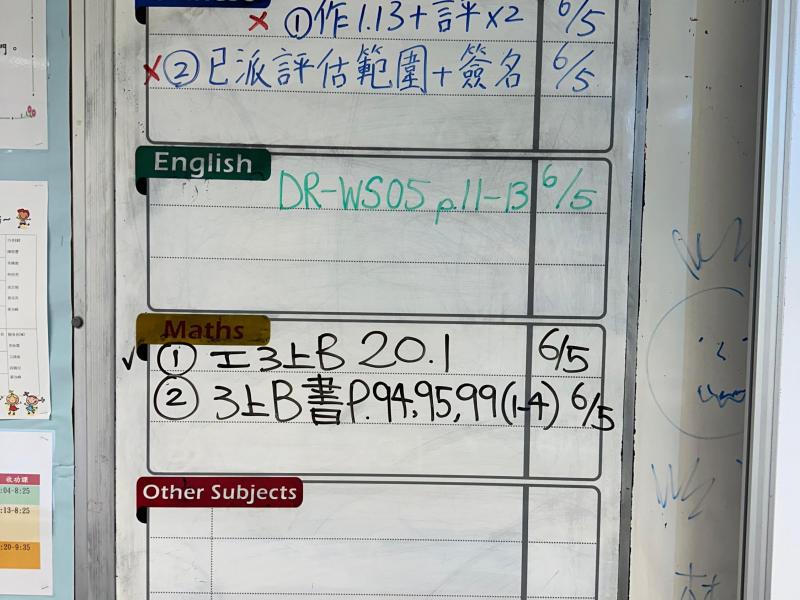 ×①作1.13+評×2 6/5
×②已派評估範圍+簽名 6/5
English
DR-WS05 p.11-13 6/5
Maths
✓①工3上B 20.1 6/5
②3上B書P.94,95,99(1-4) 6/5
Other Subjects
收功課
:04-8:25
:13-8:25
:20-9:35